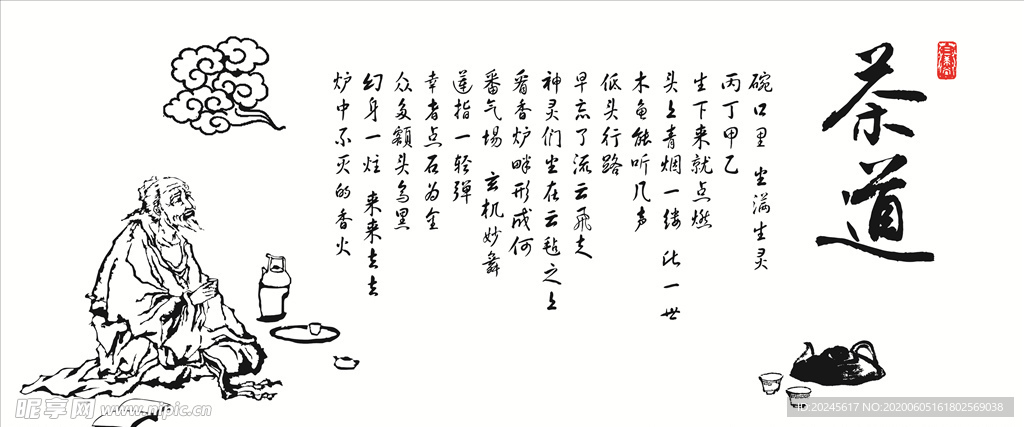 茶道
碗口里 坐满生灵
丙丁甲乙
生下来就点燃
头上青烟一缕 此一世
木鱼能听几声
低头行路
早忘了流云飛走
神灵们坐在云毡之上
看香炉畔形成何
番气場 玄机妙舞
莲指一轻弹
幸者点石为金
众多额头乌黑
幻身一炷 来来去去
炉中不灭的香火
昵享网 www.nipic.cn
ID:20245617 NO:20200605161802569038